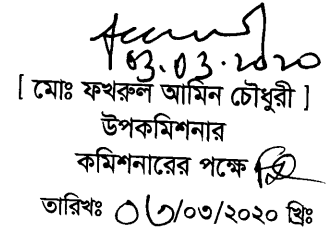 03.03.2020
[ মোঃ ফখরুল আমিন চৌধুরী ]
উপকমিশনার
কমিশনারের পক্ষে
তারিখঃ ০৩/০৩/২০২০ খ্রিঃ